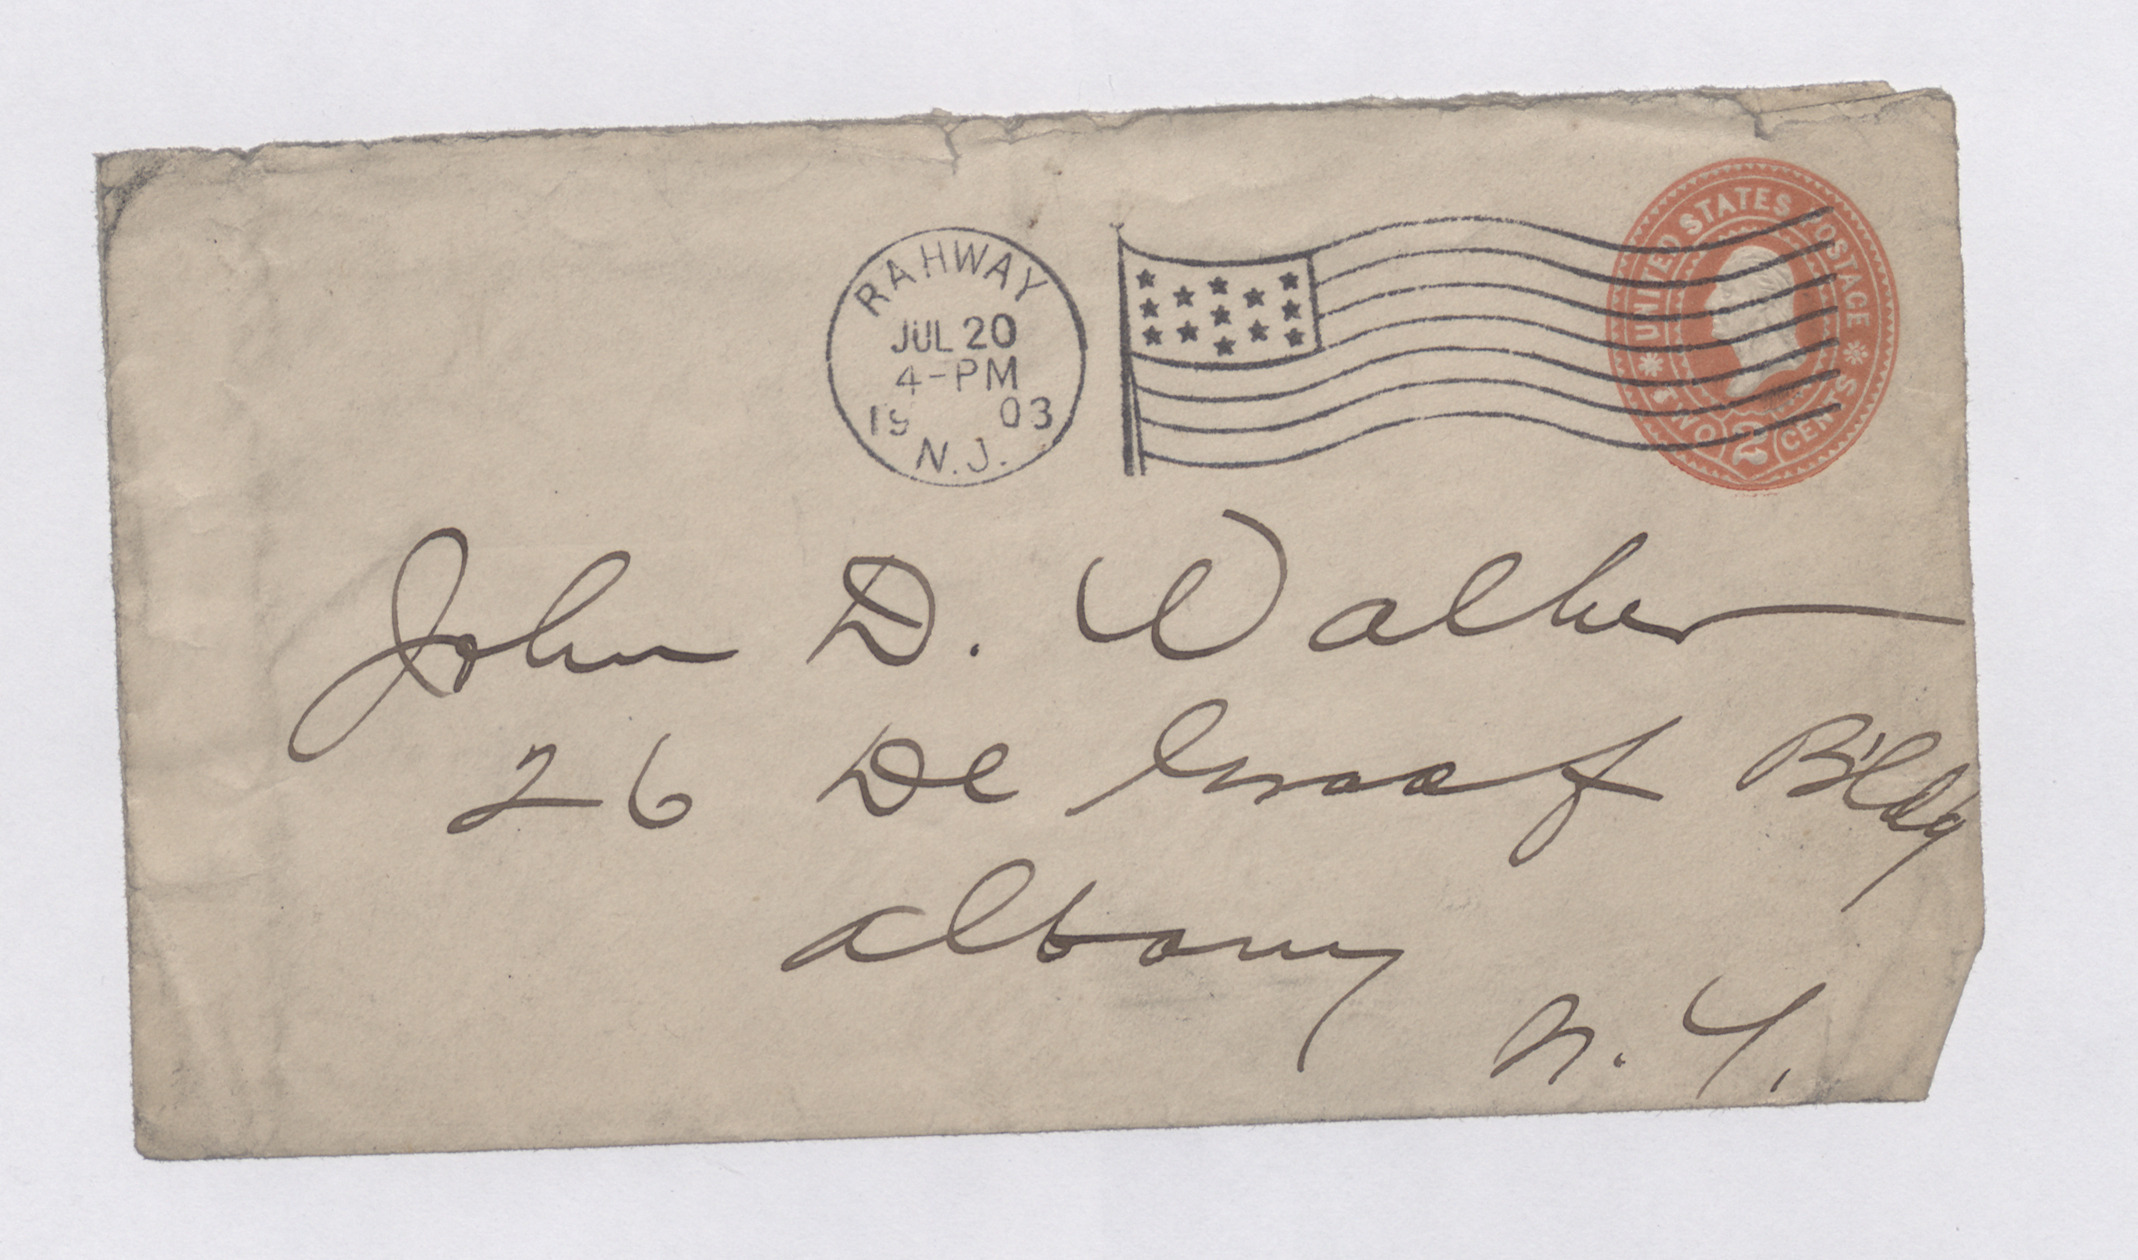 RAHWAY
JUL 20
4-PM
19 03
N.J.
UNITED STATES POSTAGE
TWO 2 CENTS
John D. Walker
26 De Graaf B'ldg
Albany
N. Y.